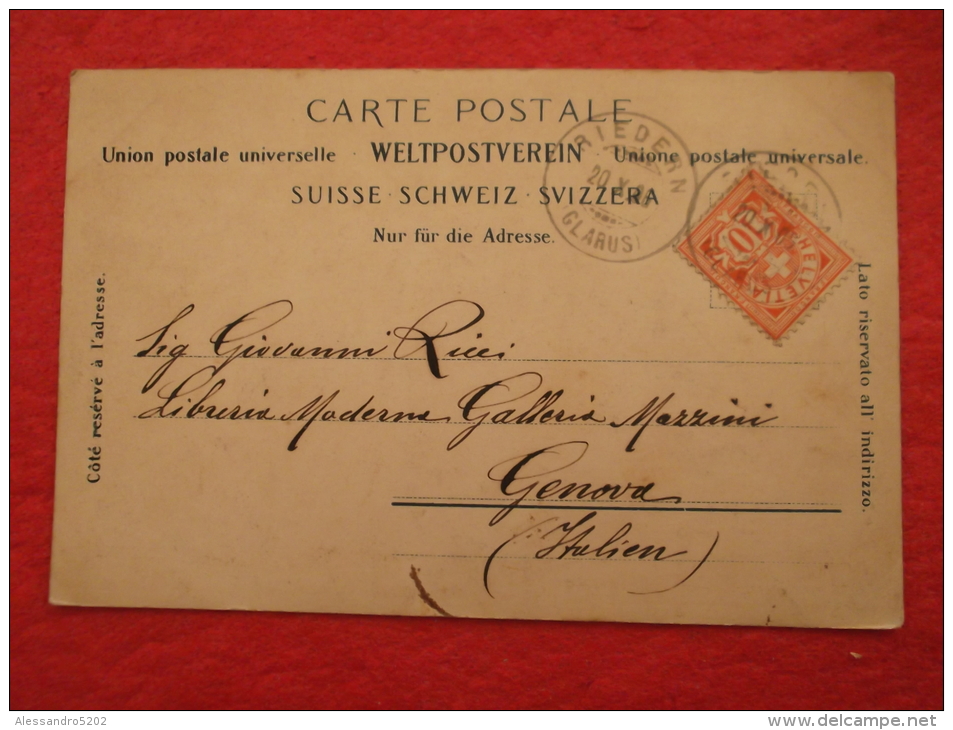 CARTE POSTALE
Union postale universelle · WELTPOSTVEREIN · Unione postale universale.
SUISSE · SCHWEIZ · SVIZZERA
Nur für die Adresse.
Côté resérvé à l'adresse.
Lato riservato all' indirizzo.
RIEDERN
20 X
(GLARUS)
10
HELVETIA
Sig Giovanni Ricci
Libreria Moderna Galleria Mazzini
Genova
(Italien)
Alessandro5202
www.delcampe.net